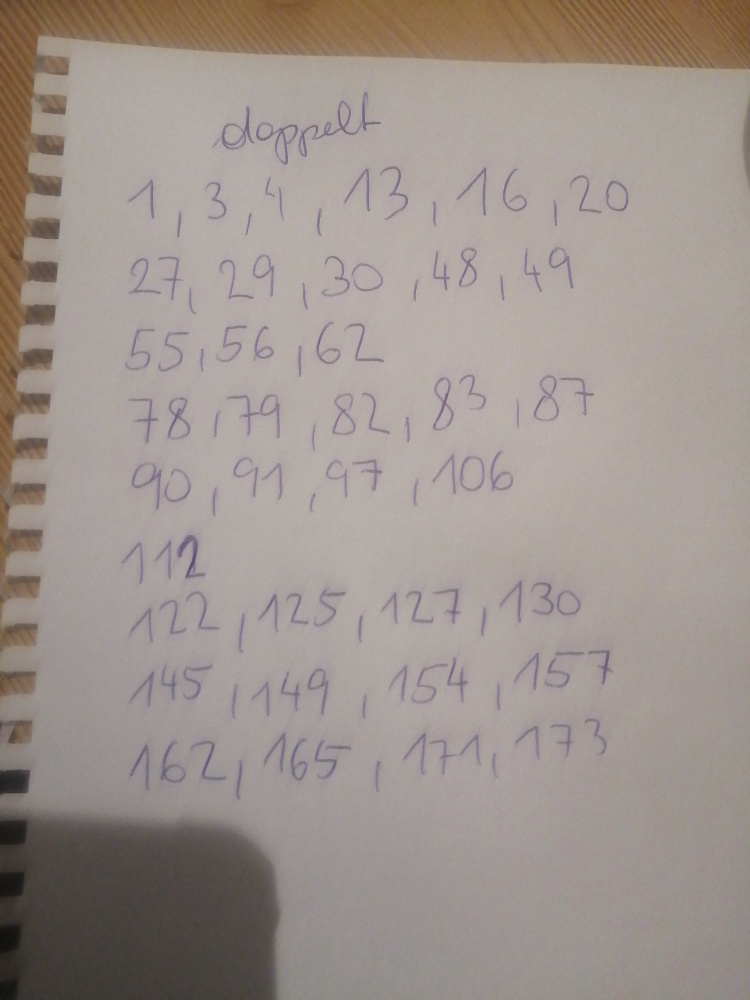 doppelt
1, 3, 4, 13, 16, 20
27, 29, 30, 48, 49
55, 56, 62
78, 79, 82, 83, 87
90, 91, 97, 106
112
122, 125, 127, 130
145, 149, 154, 157
162, 165, 171, 173